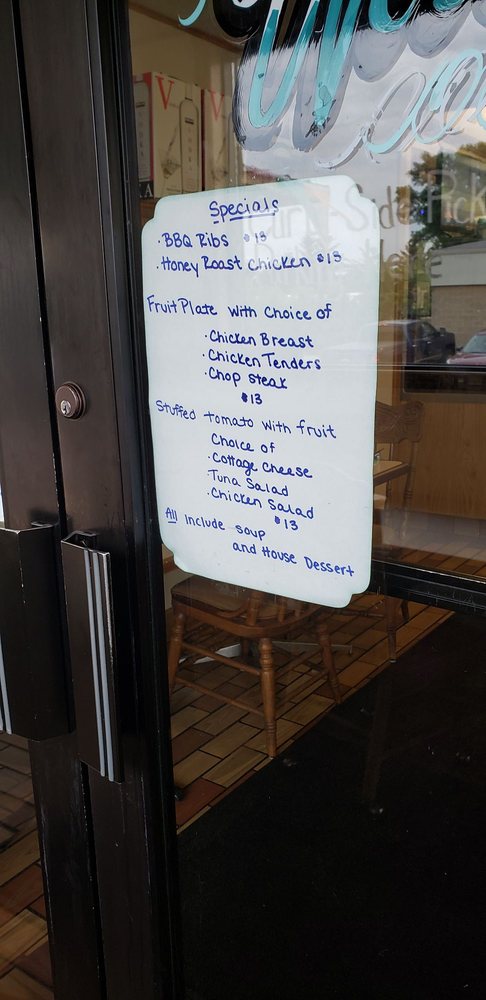 Specials
· BBQ Ribs $13
· Honey Roast Chicken $13
Fruit Plate with Choice of
· Chicken Breast
· Chicken Tenders
· Chop Steak
$13
Stuffed Tomato with fruit
Choice of
· Cottage Cheese
Tuna Salad
· Chicken Salad
$13
All Include soup
and House Dessert
V
V